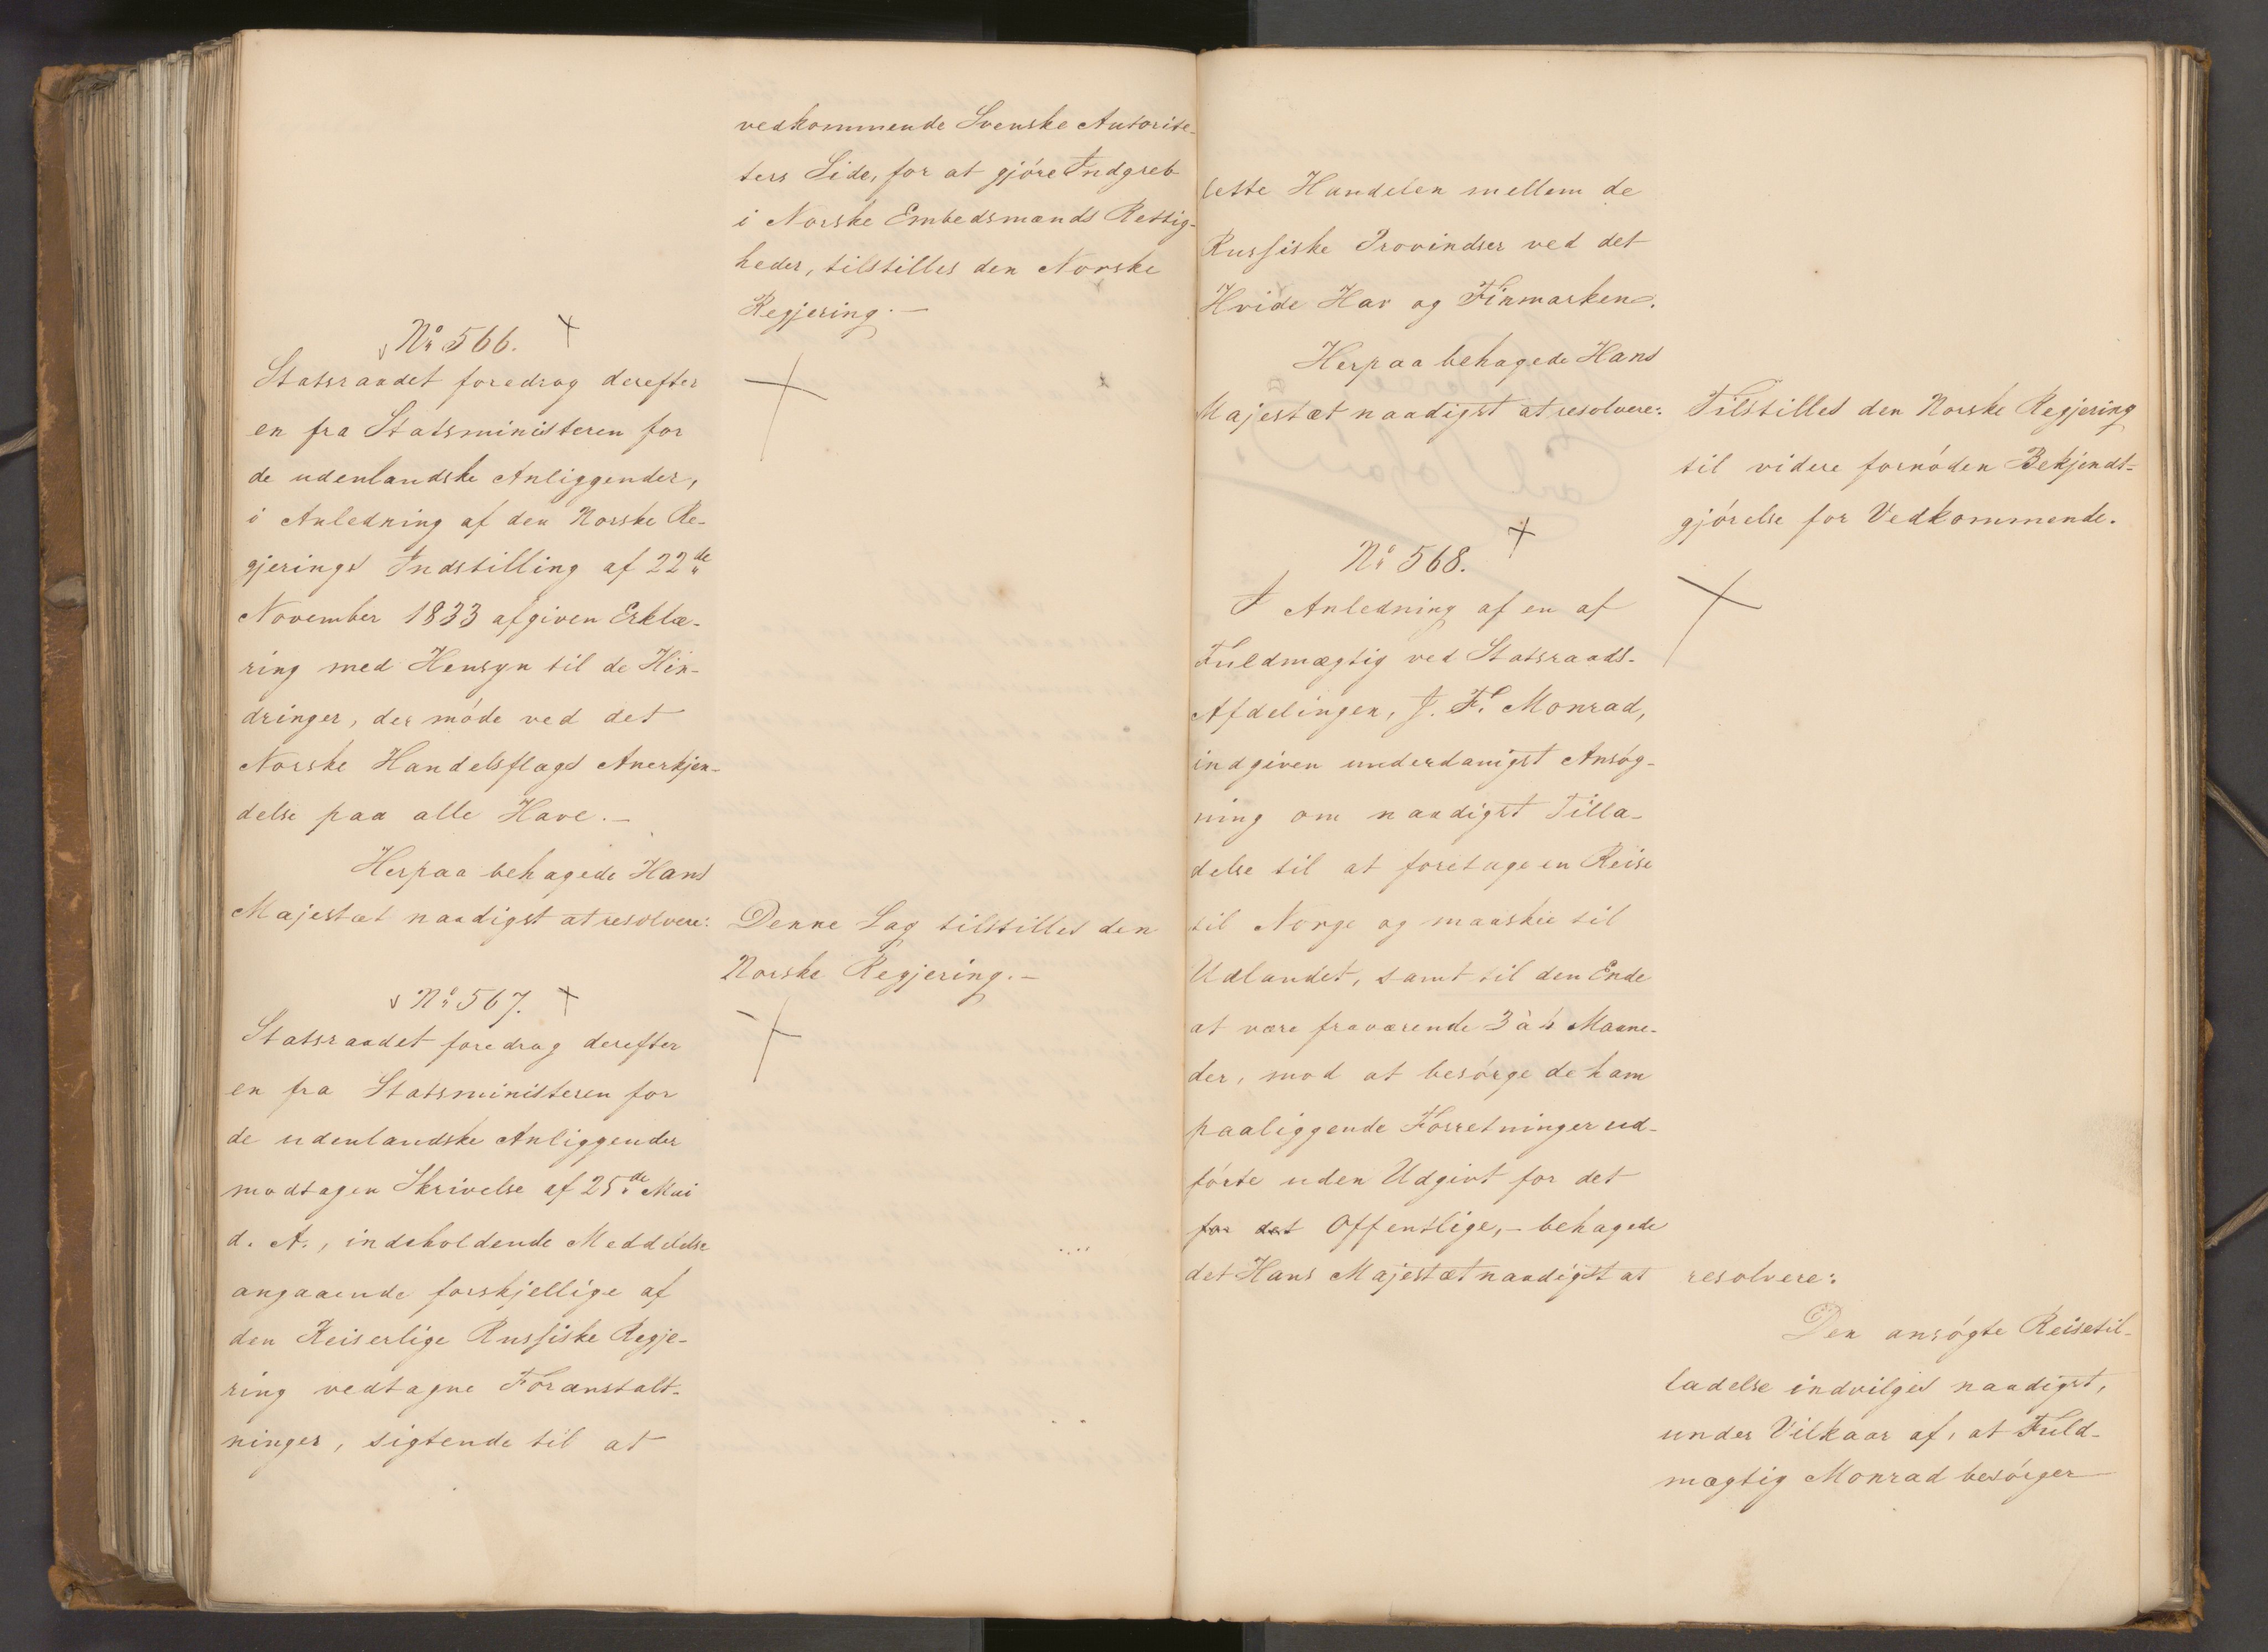 vedkommende Svenske Autorite-
ters Side, for at gjóre Indgreb
i Norske Embedsmænds Rettig-
heder, tilstilles den Norske
Regjering.—
No 566.
Statsraadet foredrog derefter
en fra Statsministeren for
de udenlandske Anliggender,
i Anledning af den Norske Re-
gjerings Indstilling af 22de
November 1833 afgiven Erklæ-
ring med Hensyn til de Hin-
dringer, der móde ved det
Norske Handelsflags Anerkjen-
delse paa alle Have.—
Herpaa behagede Hans
Majestæt naadigst at resolvere:
Denne Sag tilstilles den
Norske Regjering.—
No 567.
Statsraadet foredrog derefter
en fra Statsministeren for
de udenlandske Anliggender
modtagen Skrivelse af 25de Mai
d. A., indeholdende Meddelelse
angaaende forskjellige af
den Keiserlige Russiske Regje-
ring vedtagne Foranstalt-
ninger, sigtende til at
lette Handelen mellem de
Russiske Provindser ved det
Hvide Hav og Finmarken.
Herpaa behagede Hans
Majestæt naadigst at resolvere:
Tilstilles den Norske Regjering
til videre fornóden Bekjendt-
gjórelse for Vedkommende.
No 568.
I Anledning af en af
Fuldmægtig ved Statsraads-
Afdelingen, J. F. Monrad,
indgiven underdanigst Ansóg-
ning om naadigst Tilla-
delse til at foretage en Reise
til Norge og maaskee til
Udlandet, samt til den Ende
at være fraværende 3 à 4 Maane-
der, mod at besórge de ham
paaliggende Forretninger ud-
fórte uden Udgivt for det
for det Offentlige,— behagede
det Hans Majestæt naadigst at resolvere:
Den ansógte Reisetil-
ladelse indvilges naadigst,
under Vilkaar af, at Fuld-
mægtig Monrad besórger